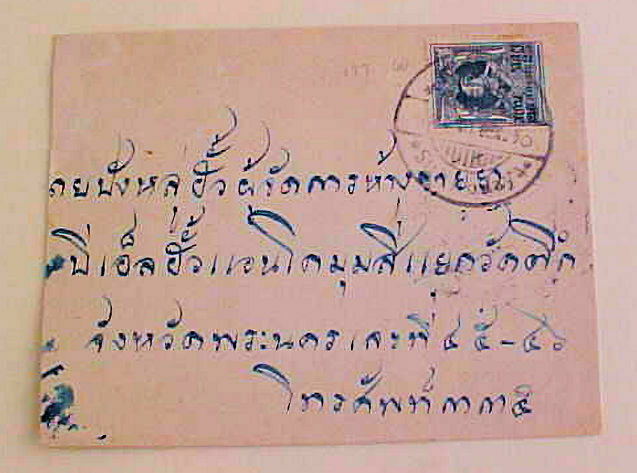 นายบังหลุยฮั้วผู้จัดการห้างขายยา
บีเอ็ลฮั้วแอนโกมุมสี่แยกวัดตึก
จังหวัดพระนครเลขที่๔๕-๔๖
โทรศัพท์๓๓๕